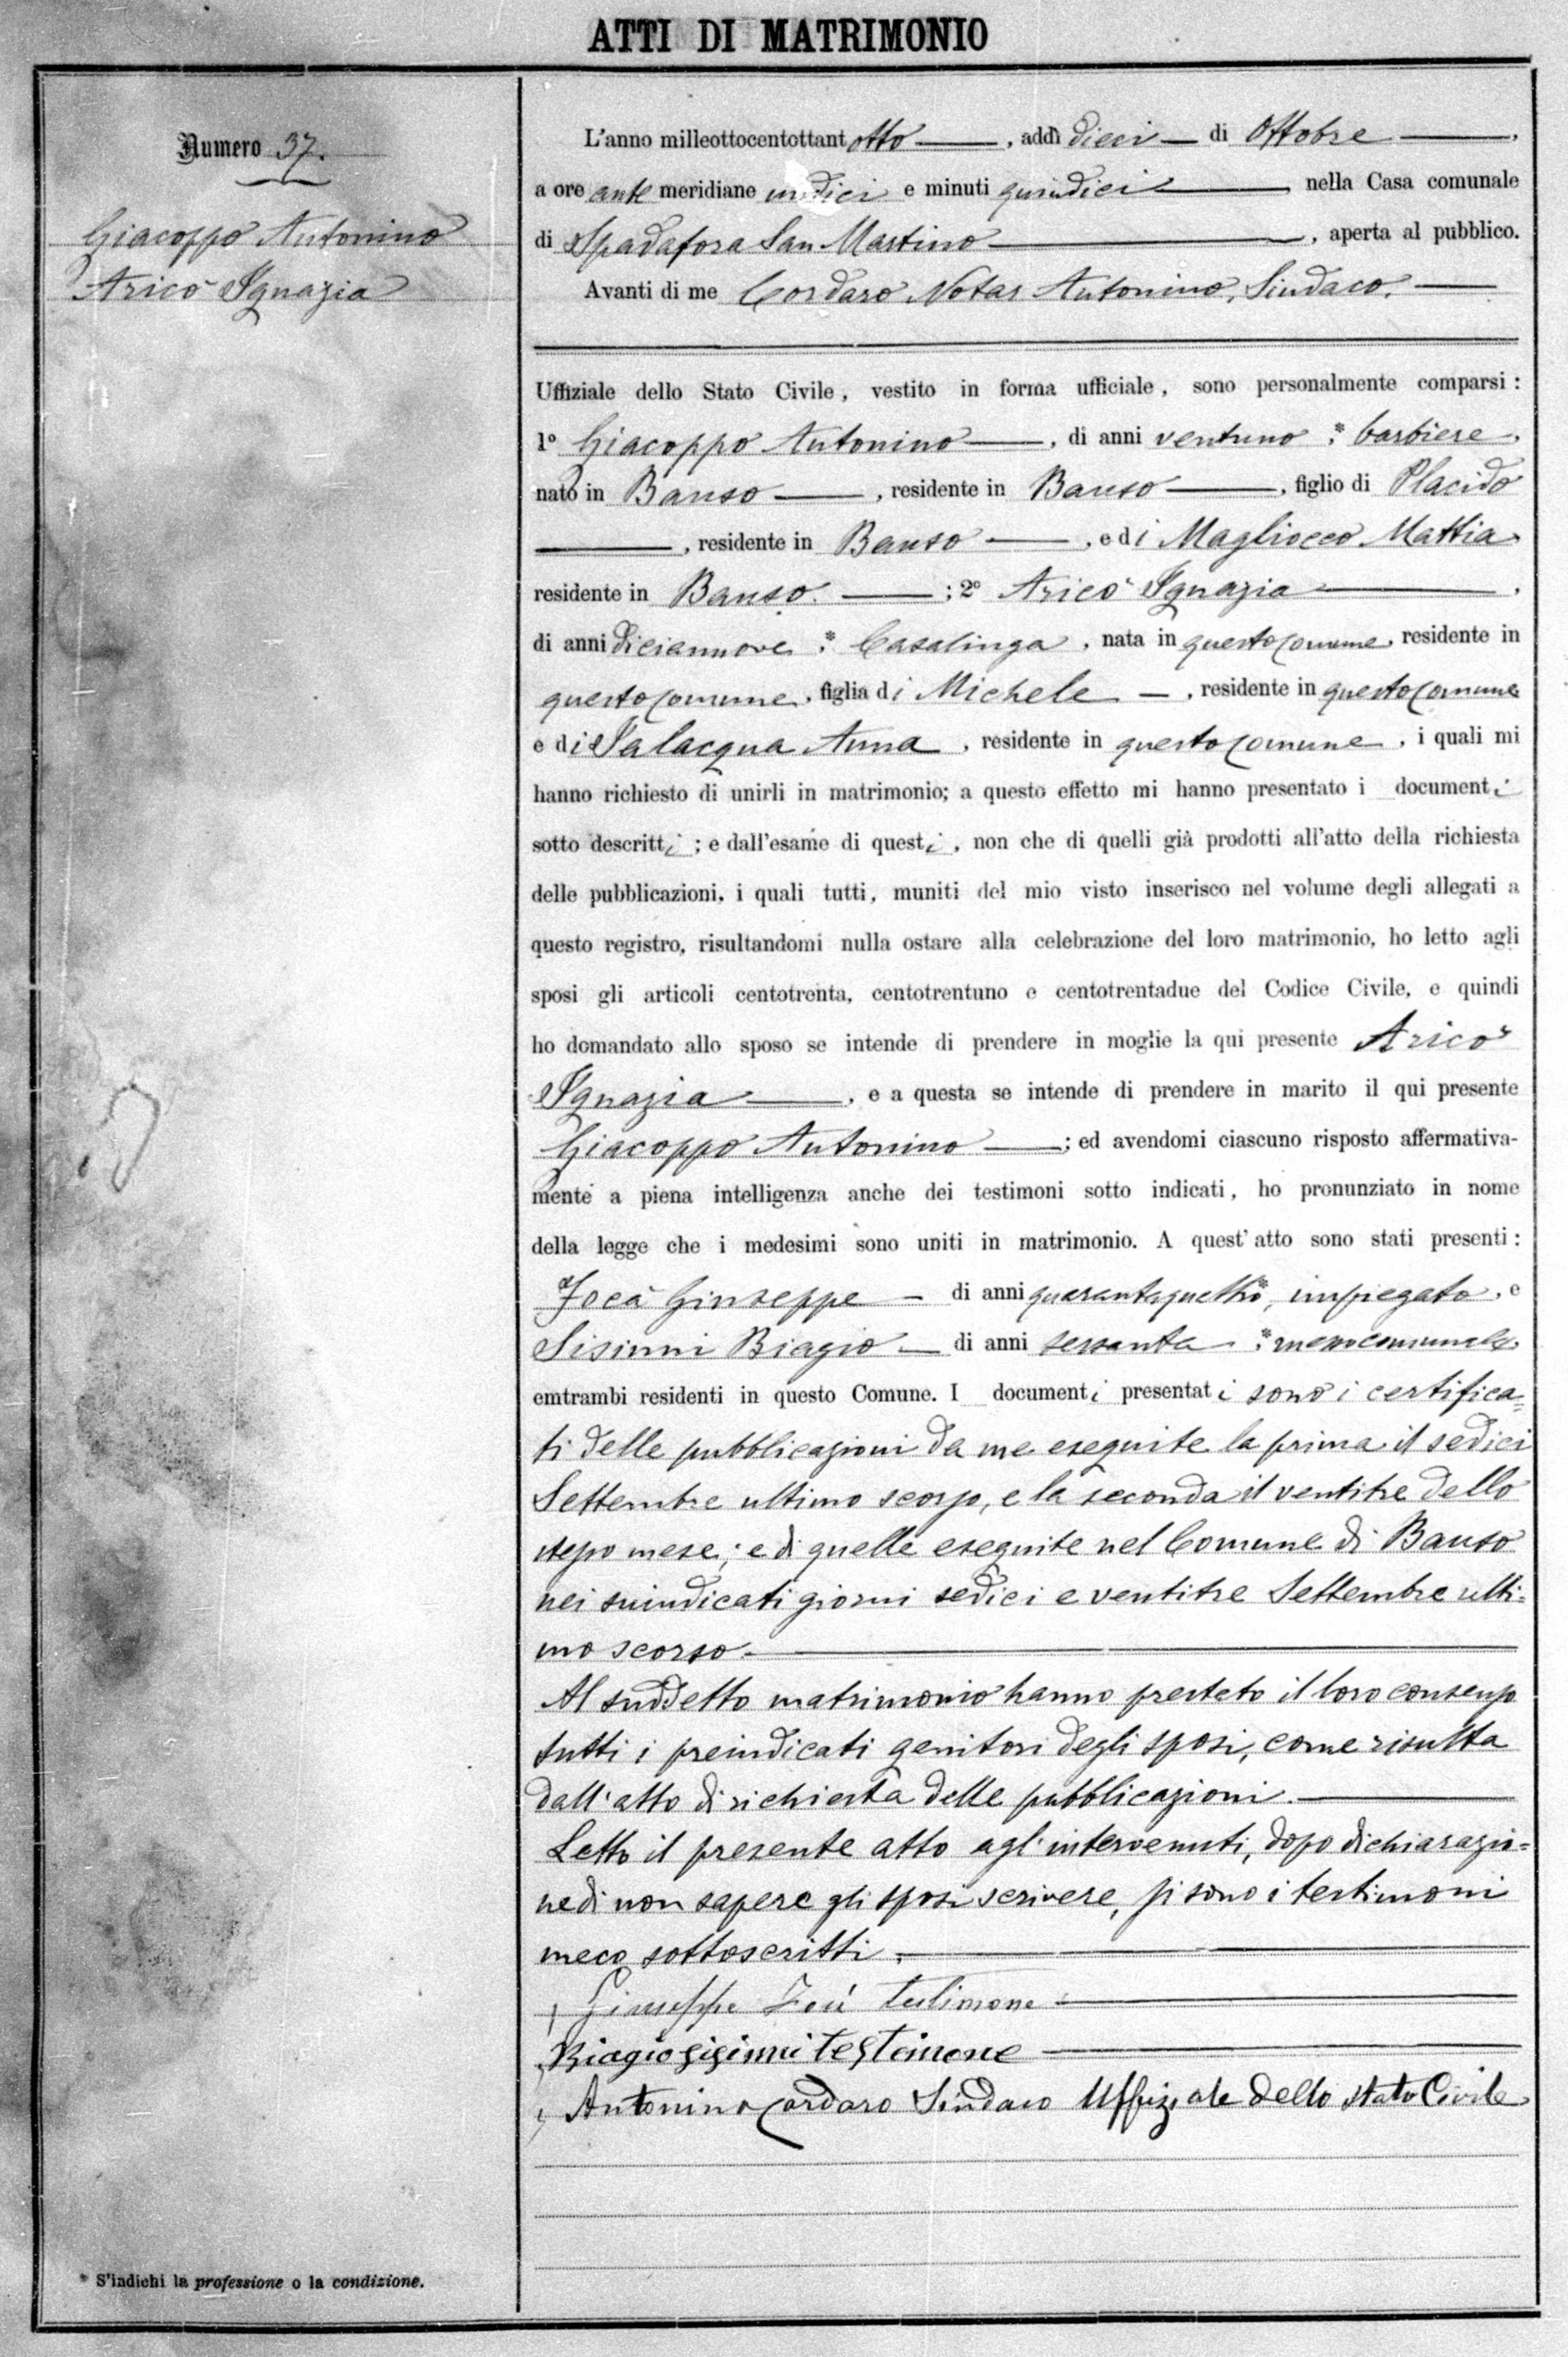 ATTI DI MATRIMONIO
Numero 37.
Giacoppo Antonino
Aricò Ignazia
L'anno milleottocentottant otto, addì dieci di Ottobre,
a ore ante meridiane undici e minuti quindici nella Casa comunale
di Spadafora San Martino, aperta al pubblico.
Avanti di me Cordaro Notar Antonino, Sindaco.
Uffiziale dello Stato Civile, vestito in forma ufficiale, sono personalmente comparsi:
1º Giacoppo Antonino, di anni ventuno, * barbiere,
nato in Bauso, residente in Bauso, figlio di Placido
, residente in Bauso, e di Magliocco Mattia
residente in Bauso.; 2º Aricò Ignazia,
di anni diciannove, * Casalinga, nata in questo Comune, residente in
questo Comune, figlia di Michele, residente in questo Comune
e di Salacqua Anna, residente in questo Comune, i quali mi
hanno richiesto di unirli in matrimonio; a questo effetto mi hanno presentato i documenti
sotto descritti; e dall'esame di questi, non che di quelli già prodotti all'atto della richiesta
delle pubblicazioni, i quali tutti, muniti del mio visto inserisco nel volume degli allegati a
questo registro, risultandomi nulla ostare alla celebrazione del loro matrimonio, ho letto agli
sposi gli articoli centotrenta, centotrentuno e centotrentadue del Codice Civile, e quindi
ho domandato allo sposo se intende di prendere in moglie la qui presente Aricò
Ignazia, e a questa se intende di prendere in marito il qui presente
Giacoppo Antonino; ed avendomi ciascuno risposto affermativa-
mente a piena intelligenza anche dei testimoni sotto indicati, ho pronunziato in nome
della legge che i medesimi sono uniti in matrimonio. A quest'atto sono stati presenti:
Giuseppe di anni quarantaquattro, * impiegato, e
Sisinni Biagio di anni sessanta, * messo comunale,
emtrambi residenti in questo Comune. I documenti presentati sono i certifica=
ti delle pubblicazioni da me eseguite la prima il sedici
Settembre ultimo scorso, e la seconda il ventitre dello
stesso mese; e di quelle eseguite nel Comune di Bauso
nei suindicati giorni sedici e ventitre Settembre ulti=
mo scorso.
Al suddetto matrimonio hanno prestato il loro consenso
tutti i preindicati genitori degli sposi, come risulta
dall'atto di richiesta delle pubblicazioni.
Letto il presente atto agl'intervenuti, dopo dichiarazio=
ne di non sapere gli sposi scrivere, si sono i testimoni
meco sottoscritti.
Giuseppe testimone
Biagio Sisinni testimone
Antonino Cordaro Sindaco Uffiziale dello Stato Civile
* S'indichi la professione o la condizione.